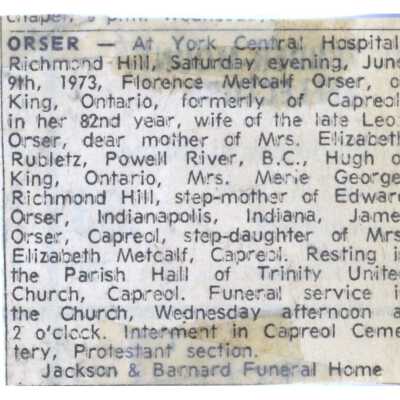 ORSER — At York Central Hospital
Richmond Hill, Saturday evening, June
9th, 1973, Florence Metcalf Orser, o
King, Ontario, formerly of Capreol
in her 82nd year, wife of the late Leo
Orser, dear mother of Mrs. Elizabeth
Rubletz, Powell River, B.C., Hugh o
King, Ontario, Mrs. Merie George
Richmond Hill, step-mother of Edward
Orser, Indianapolis, Indiana, Jame
Orser, Capreol, step-daughter of Mrs
Elizabeth Metcalf, Capreol. Resting i
the Parish Hall of Trinity United
Church, Capreol. Funeral service i
the Church, Wednesday afternoon a
2 o'clock. Interment in Capreol Ceme
tery, Protestant section.
Jackson & Barnard Funeral Home